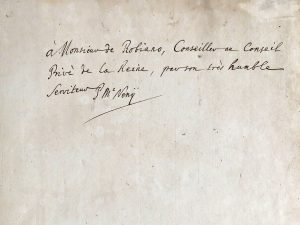 à Monsieur de Robiano, Conseiller au Conseil
Privé de la Reine, par son très humble
Serviteur